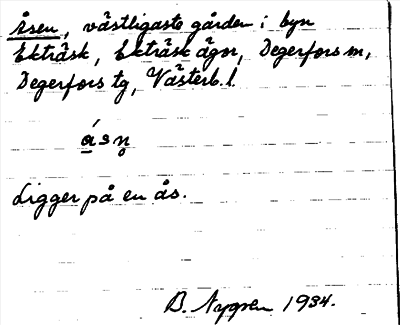 Åsen, västligaste gården i byn
Ekträsk, Ekträsk ägor, Degerfors m,
Degerfors tg, Västerb. l.
á̲sn̥
Ligger på en ås.
B. Nygren 1934.